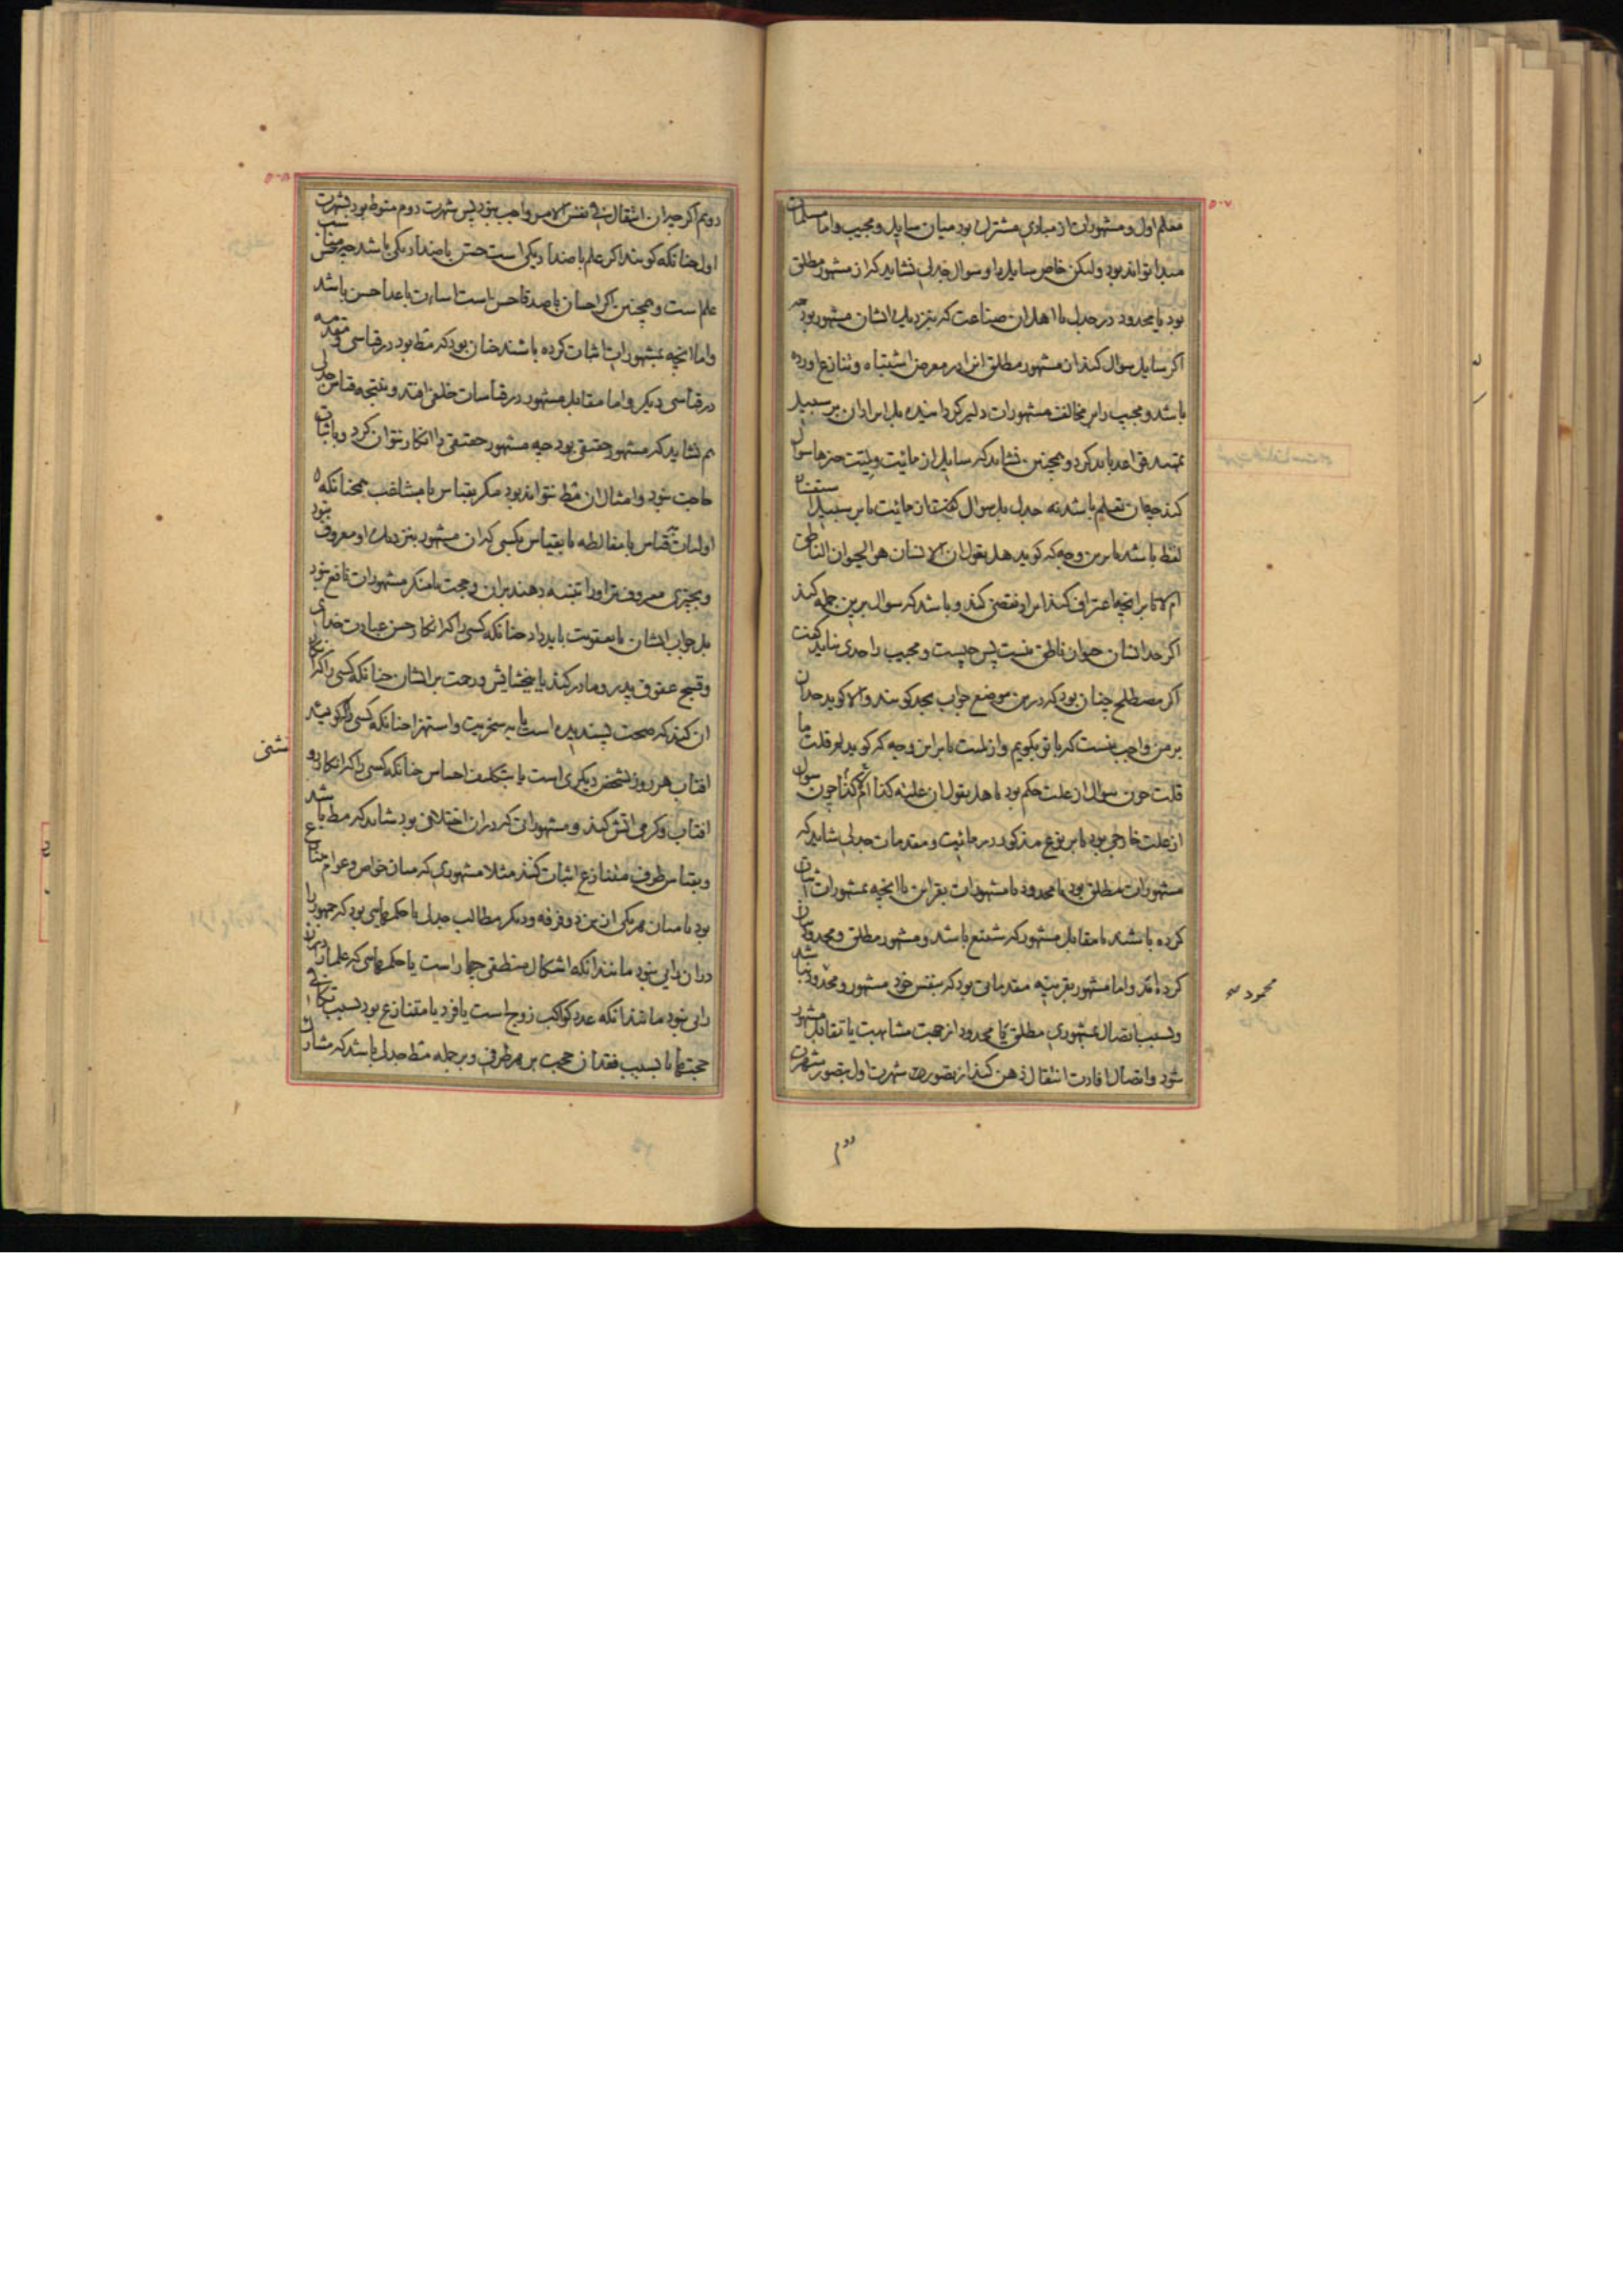 ۵۰۷
معلم اول و مشهورات از مبادی مشترک بود میان سایل و مجیب و اما مسلمات
مبدا تواند بود ولیکن خاص سایل را و سوال جدلی نشاید که از مشهور مطلق
بود یا محدود در جدل با اهل ان صناعت که بنزدیک ایشان مشهور بود چه
اکر سایل سوال کند از مشهور مطلق انرا در معرض اشتباه و تنازع اورده
باشد و مجیب را بر مخالفت مشهورات دلیر کردانیده بل ایراد ان بر سبیل
تمهید قواعد باید کرد و همچنین نشاید که سایل از مائیت و لمیت چیزها سوال
کند چه ان تعلیم باشد نه جدل بل سوال کفتن از مائیت یا بر سبیل استفسار
لفظ باشد یا برین وجه که کوید هل یقول ان الانسان هو الحیوان الناطق
ام لا تا برانچه اعتراف کند اورا نقض کند و باشد که سوال برین جمله کند
اکر حد انسان حیوان ناطق نیست پس چیست و مجیب را حدی نباید کفت
اکر مصطلح چنان بود که درین موضع جواب بحد کویند و الا کوید حد ان
بر من واجب نیست که با تو بکویم و از لمیت یا براین وجه که کوید لم قلت ما
قلت چون سوال از علت حکم بود یا هل یقول ان علته کذا ام کذا چون سوال
از علت خارجی بود یا بر نوع مذکور در مائیت و مقدمات جدلی شاید که
مشهورات مطلق بود یا محدود یا مشهورات بقراین یا انچه بمشهورات اثبات
کرده باشند یا مقابل مشهور که شنیع باشد و مشهور مطلق و محدود بیان
کرده امد و اما مشهور بقرینه مقدماتی بود که بنفس خود مشهور و محمود نباشد
محمود صح
و بسبب اتصال بمشهوری مطلق یا محدود از جهت مشابهت یا تقابل مشهور
شود و اتصال افادت انتقال ذهن کند از تصور شهرت اول بتصور شهرت
دوم
۵۰۸
دوم اکر چه ان انتقال فی نفس الامر واجب نبود پس شهرت دوم منوط بود بشهرت
اول چنانکه کویند اکر علم باضداد یکی است حس باضداد یکی باشد چه حس مناسب
علم است و همچنین اکر احسان باصدقا حسن است اساءت باعدا حسن باشد
و اما انچه بمشهورات اثبات کرده باشند چنان بود که مط بود در قیاسی و مقدمه
در قیاسی دیکر و اما مقابل مشهور در قیاسات خلفی افتد و نتیجه قیاس جدلی
هم نشاید که مشهور حقیقی بود چه مشهور حقیقی را انکار نتوان کرد و باثبات
حاجت نبود و امثال ان مط نتواند بود مکر بقیاس با مشاغب همچنانکه
اولیات بقیاس با مغالطه یا بقیاس بکسی که ان مشهور بنزدیک او معروف نبود
و بچیزی معروف‌تر اورا تنبیه دهند بران و حجت با منکر مشهورات نافع نبود
بل جواب ایشان یا بعقوبت باید داد چنانکه کسی را که انکار حسن عبادت خدای
و قبح عقوق پدر و مادر کند یا ببخشایش و رحمت بر ایشان چنانکه کسی را که انکار
ان کند که صحت پسندیده است یا به سخریت و استهزا چنانکه کسی را که کوید
افتاب هر روز شخصی دیکری است یا بتکلیف احساس چنانکه کسی را که انکار
افتاب و کرمی اتش کند و مشهوراتی که دران اختلافی بود شاید که مط باشد
و بقیاس طرف متنازع اثبات کنند مثلا مشهوری که میان خواص و عوام متنازع
بود یا میان هر یکی ازین دو فرقه و دیکر مطالب جدل یا حکمهایی بود که جمهور را
دران رایی نبود مانند انکه اشکال منطقی چهار است یا حکمهایی که علما را دران
رایی نبود مانند انکه عدد کواکب زوج است یا فرد یا متنازع بود بسبب تکافی
حجتها یا بسبب فقدان حجت بر هر طرف و بر جمله مط جدل باشد که مشار